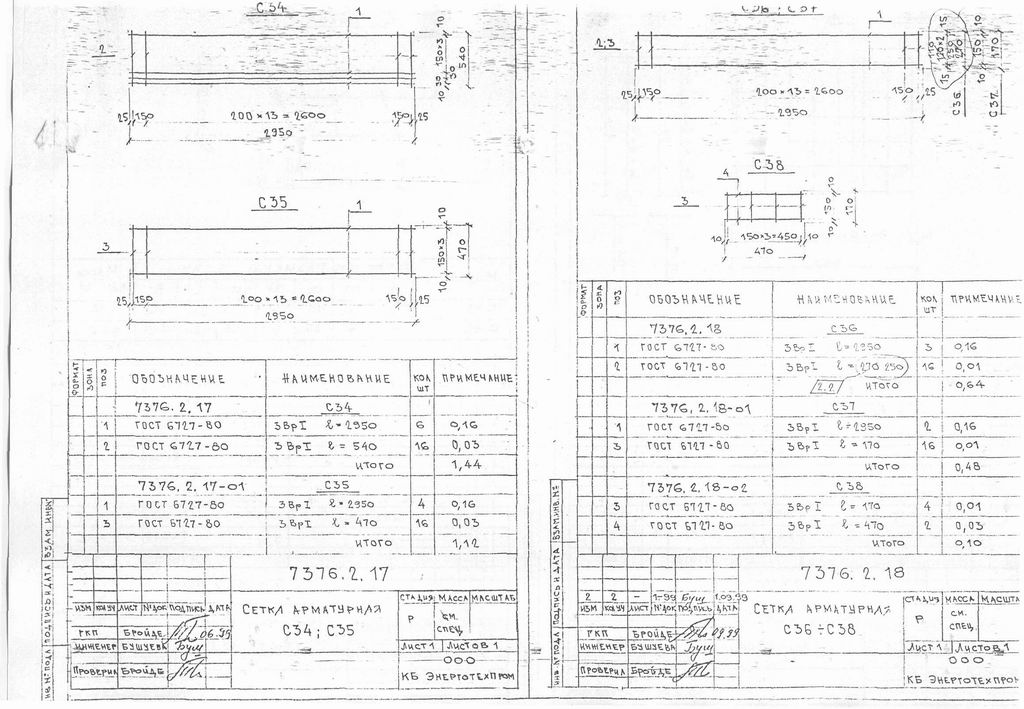 С34
1
2
10
150×3
30
30
10
540
25 150
200×13=2600
150 25
2950
С35
1
3
10
150×3
10
470
25 150
200×13=2600
150 25
2950
ФОРМАТ ЗОНА ПОЗ ОБОЗНАЧЕНИЕ НАИМЕНОВАНИЕ КОЛ ШТ ПРИМЕЧАНИЕ
7376.2.17 С34
1 ГОСТ 6727-80 3ВрI ℓ=2950 6 0,16
2 ГОСТ 6727-80 3ВрI ℓ=540 16 0,03
ИТОГО 1,44
7376.2.17-01 С35
1 ГОСТ 6727-80 3ВрI ℓ=2950 4 0,16
3 ГОСТ 6727-80 3ВрI ℓ=470 16 0,03
ИТОГО 1,12
7376.2.17
ИЗМ КОЛ УЧ ЛИСТ №ДОК ПОДПИСЬ ДАТА
РКП БРОЙДЕ 06.99
ИНЖЕНЕР БУШУЕВА Буш
ПРОВЕРИЛ БРОЙДЕ
СЕТКА АРМАТУРНАЯ
С34; С35
СТАДИЯ МАССА МАСШТАБ
Р СМ. СПЕЦ.
ЛИСТ 1 ЛИСТОВ 1
ООО
КБ ЭНЕРГОТЕХПРОМ
ИНВ.№ ПОДЛ ПОДПИСЬ И ДАТА ВЗАМ ИНВ№
С36; С37
1
2;3
25 150
200×13=2600
150 25
2950
15
120×2
15
250
270
С36
10
150
10
170
С37
С38
4
3
10
150
10
170
10 150×3=450 10
470
ФОРМАТ ЗОНА ПОЗ ОБОЗНАЧЕНИЕ НАИМЕНОВАНИЕ КОЛ ШТ ПРИМЕЧАНИЕ
7376.2.18 С36
1 ГОСТ 6727-80 3ВрI ℓ=2950 3 0,16
2 ГОСТ 6727-80 3ВрI ℓ=270 250 16 0,01
2.2 ИТОГО 0,64
7376.2.18-01 С37
1 ГОСТ 6727-80 3ВрI ℓ=2950 2 0,16
3 ГОСТ 6727-80 3ВрI ℓ=170 16 0,01
ИТОГО 0,48
7376.2.18-02 С38
3 ГОСТ 6727-80 3ВрI ℓ=170 4 0,01
4 ГОСТ 6727-80 3ВрI ℓ=470 2 0,03
ИТОГО 0,10
7376.2.18
2 2 - 1-99 Буш 1.09.99
ИЗМ КОЛ УЧ ЛИСТ №ДОК ПОДПИСЬ ДАТА
РКП БРОЙДЕ 09.99
ИНЖЕНЕР БУШУЕВА Буш
ПРОВЕРИЛ БРОЙДЕ
СЕТКА АРМАТУРНАЯ
С36÷С38
СТАДИЯ МАССА МАСШТА
Р СМ. СПЕЦ.
ЛИСТ 1 ЛИСТОВ 1
ООО
КБ ЭНЕРГОТЕХПРОМ
ИНВ.№ ПОДЛ ПОДПИСЬ И ДАТА ВЗАМ.ИНВ.№